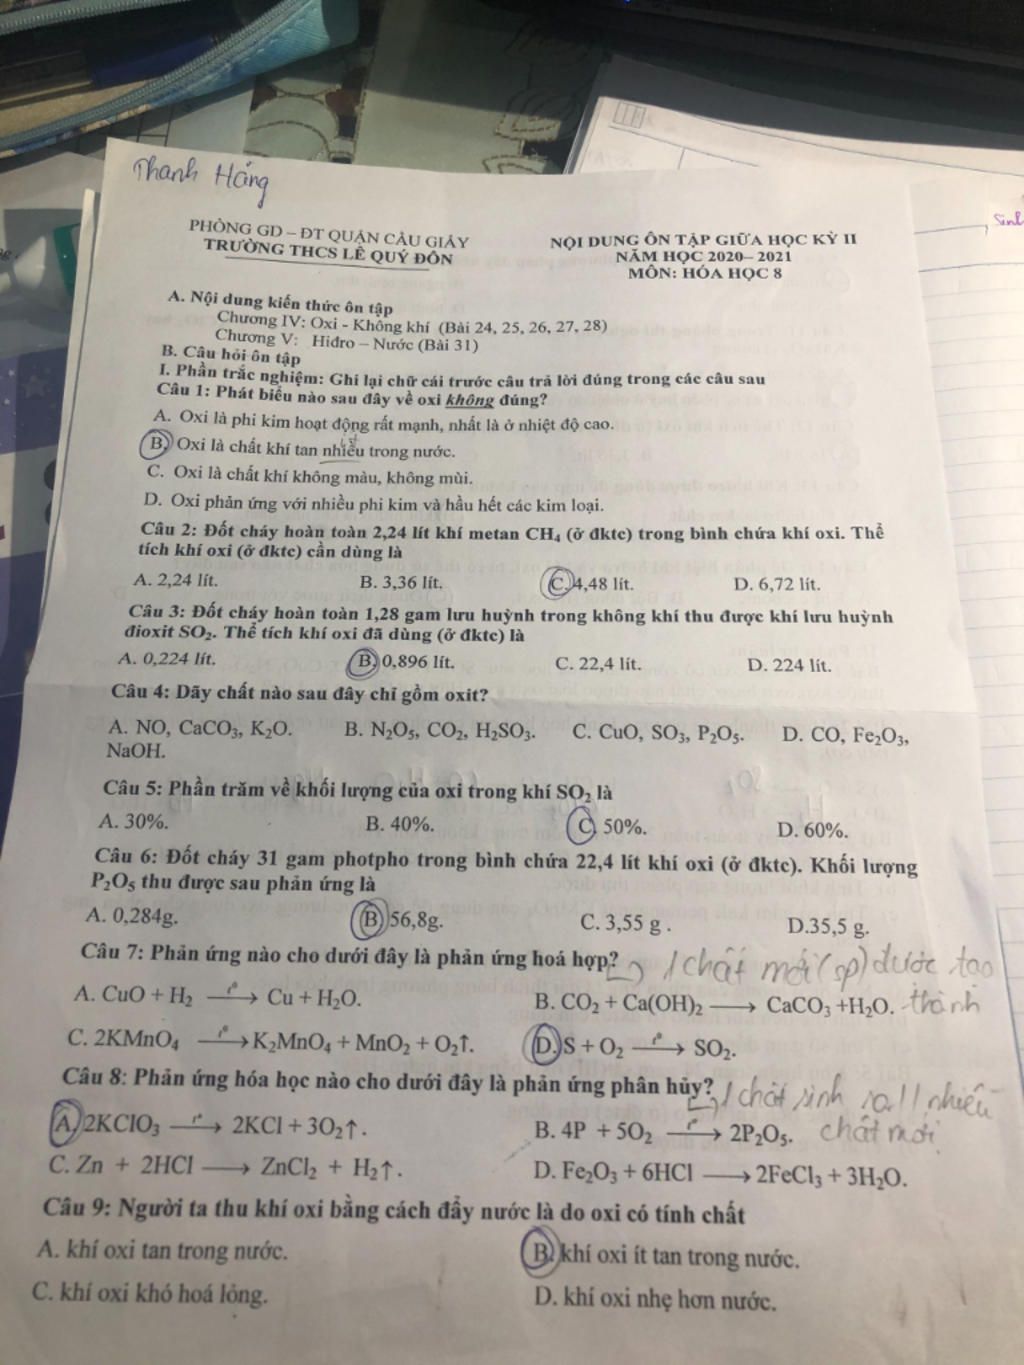 Thanh Hằng
PHÒNG GD – ĐT QUẬN CẦU GIẤY
TRƯỜNG THCS LÊ QUÝ ĐÔN
NỘI DUNG ÔN TẬP GIỮA HỌC KỲ II
NĂM HỌC 2020– 2021
MÔN: HÓA HỌC 8
A. Nội dung kiến thức ôn tập
Chương IV: Oxi - Không khí (Bài 24, 25, 26, 27, 28)
Chương V: Hiđro – Nước (Bài 31)
B. Câu hỏi ôn tập
I. Phần trắc nghiệm: Ghi lại chữ cái trước câu trả lời đúng trong các câu sau
Câu 1: Phát biểu nào sau đây về oxi không đúng?
A. Oxi là phi kim hoạt động rất mạnh, nhất là ở nhiệt độ cao.
ít
B. Oxi là chất khí tan nhiều trong nước.
C. Oxi là chất khí không màu, không mùi.
D. Oxi phản ứng với nhiều phi kim và hầu hết các kim loại.
Câu 2: Đốt cháy hoàn toàn 2,24 lít khí metan CH₄ (ở đktc) trong bình chứa khí oxi. Thể
tích khí oxi (ở đktc) cần dùng là
A. 2,24 lít. B. 3,36 lít. C. 4,48 lít. D. 6,72 lít.
Câu 3: Đốt cháy hoàn toàn 1,28 gam lưu huỳnh trong không khí thu được khí lưu huỳnh
đioxit SO₂. Thể tích khí oxi đã dùng (ở đktc) là
A. 0,224 lít. B. 0,896 lít. C. 22,4 lít. D. 224 lít.
Câu 4: Dãy chất nào sau đây chỉ gồm oxit?
A. NO, CaCO₃, K₂O. B. N₂O₅, CO₂, H₂SO₃. C. CuO, SO₃, P₂O₅. D. CO, Fe₂O₃,
NaOH.
Câu 5: Phần trăm về khối lượng của oxi trong khí SO₂ là
A. 30%. B. 40%. C. 50%. D. 60%.
Câu 6: Đốt cháy 31 gam photpho trong bình chứa 22,4 lít khí oxi (ở đktc). Khối lượng
P₂O₅ thu được sau phản ứng là
A. 0,284g. B. 56,8g. C. 3,55 g . D.35,5 g.
Câu 7: Phản ứng nào cho dưới đây là phản ứng hoá hợp? 1 chất mới (sp) được tạo
A. CuO + H₂ —t°→ Cu + H₂O. B. CO₂ + Ca(OH)₂ ⟶ CaCO₃ +H₂O. thành
C. 2KMnO₄ —t°→ K₂MnO₄ + MnO₂ + O₂↑. D. S + O₂ —t°→ SO₂.
Câu 8: Phản ứng hóa học nào cho dưới đây là phản ứng phân hủy? 1 chất sinh ra nhiều
A. 2KClO₃ —t°→ 2KCl + 3O₂↑. B. 4P + 5O₂ —t°→ 2P₂O₅. chất mới
C. Zn + 2HCl ⟶ ZnCl₂ + H₂↑. D. Fe₂O₃ + 6HCl ⟶ 2FeCl₃ + 3H₂O.
Câu 9: Người ta thu khí oxi bằng cách đẩy nước là do oxi có tính chất
A. khí oxi tan trong nước. B. khí oxi ít tan trong nước.
C. khí oxi khó hoá lỏng. D. khí oxi nhẹ hơn nước.